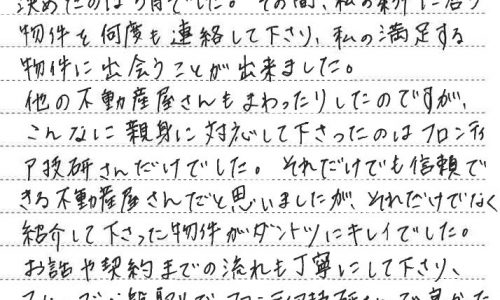 決めたのは
物件を何度も連絡して下さり、私の満足する
物件に出会うことが出来ました。
他の不動産屋さんもまわったりしたのですが、
こんなに親身に対応して下さったのはフロンティ
ア技研さんだけでした。それだけでも信頼で
きる不動産屋さんだと思いましたが、それだけでなく
紹介して下さった物件がダントツにキレイでした。
お話や契約までの流れも丁寧にして下さり、